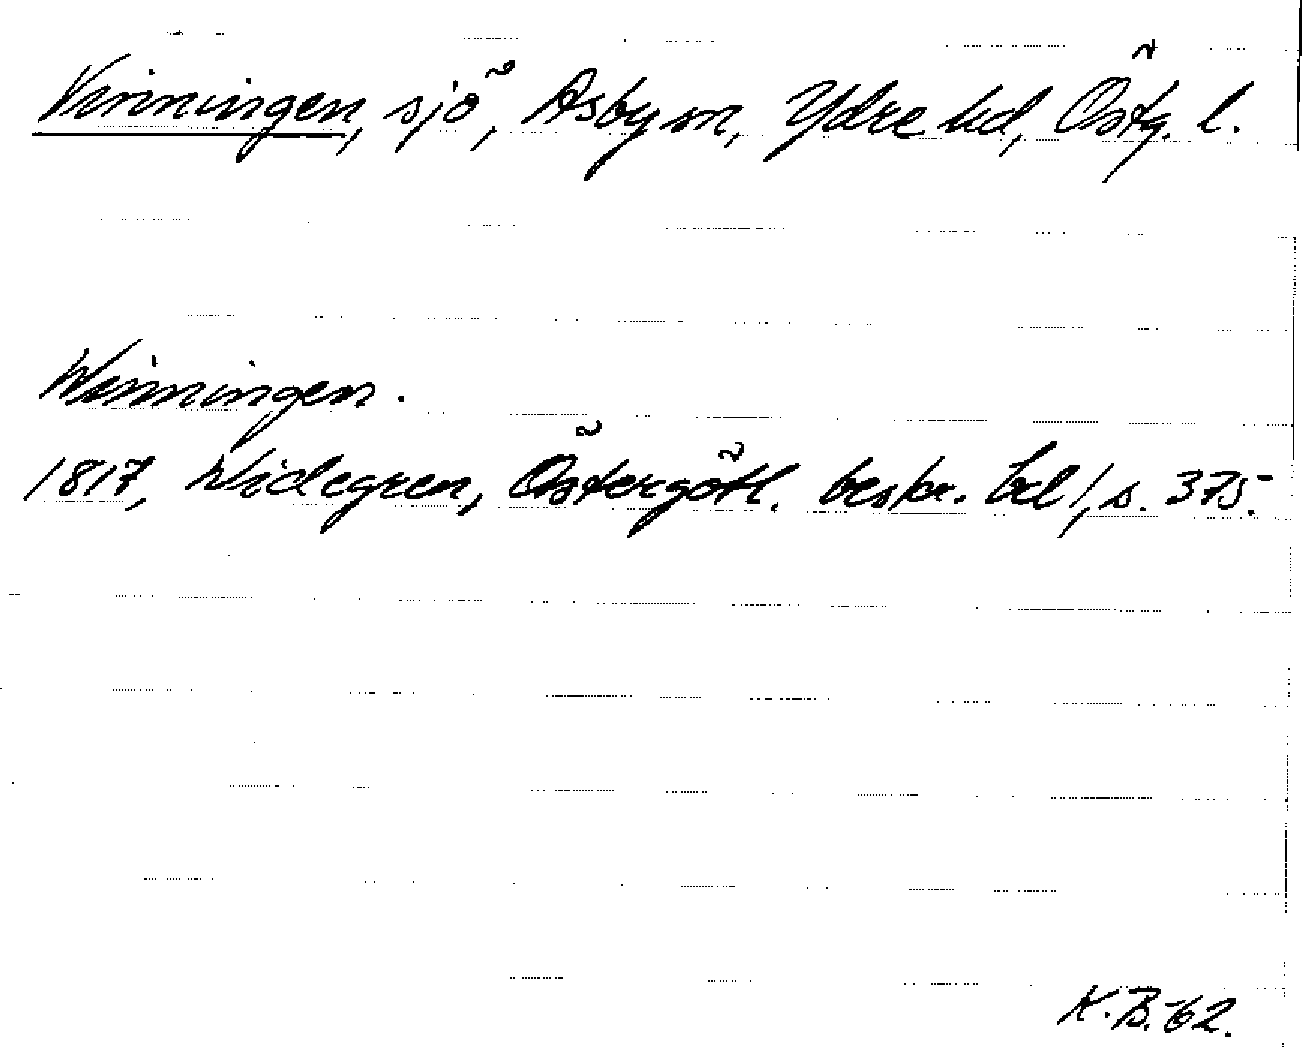 Vinningen, sjö, Asby sn, Ydre hd, Östg. l.
Winningen.
1817, Widegren, Östergötl. beskr. bd 1, s. 375.
K.B.-62.